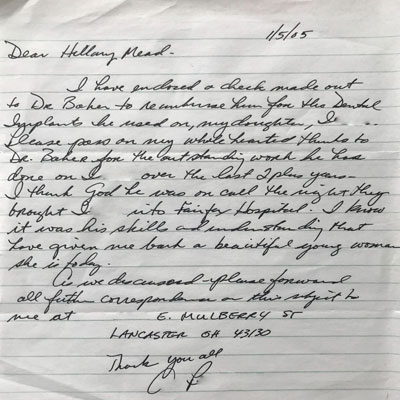 1/5/05
Dear Hillary Mead -
I have enclosed a check made out
to Dr. Baker to reimburse him for the Dental
Implants he used on, my daughter, I
Please pass on my whole hearted thanks to
Dr. Baker for the outstanding work he has
done on I over the last 2 plus years -
I thank God he was on call the night they
brought I into Fairfax Hospital. I know
it was his skills and understanding that
have given me back a beautiful young woman
she is today.
As we discussed - please forward
all further correspondence on this subject to
me at E. MULBERRY ST
LANCASTER OH 43130
Thank you all